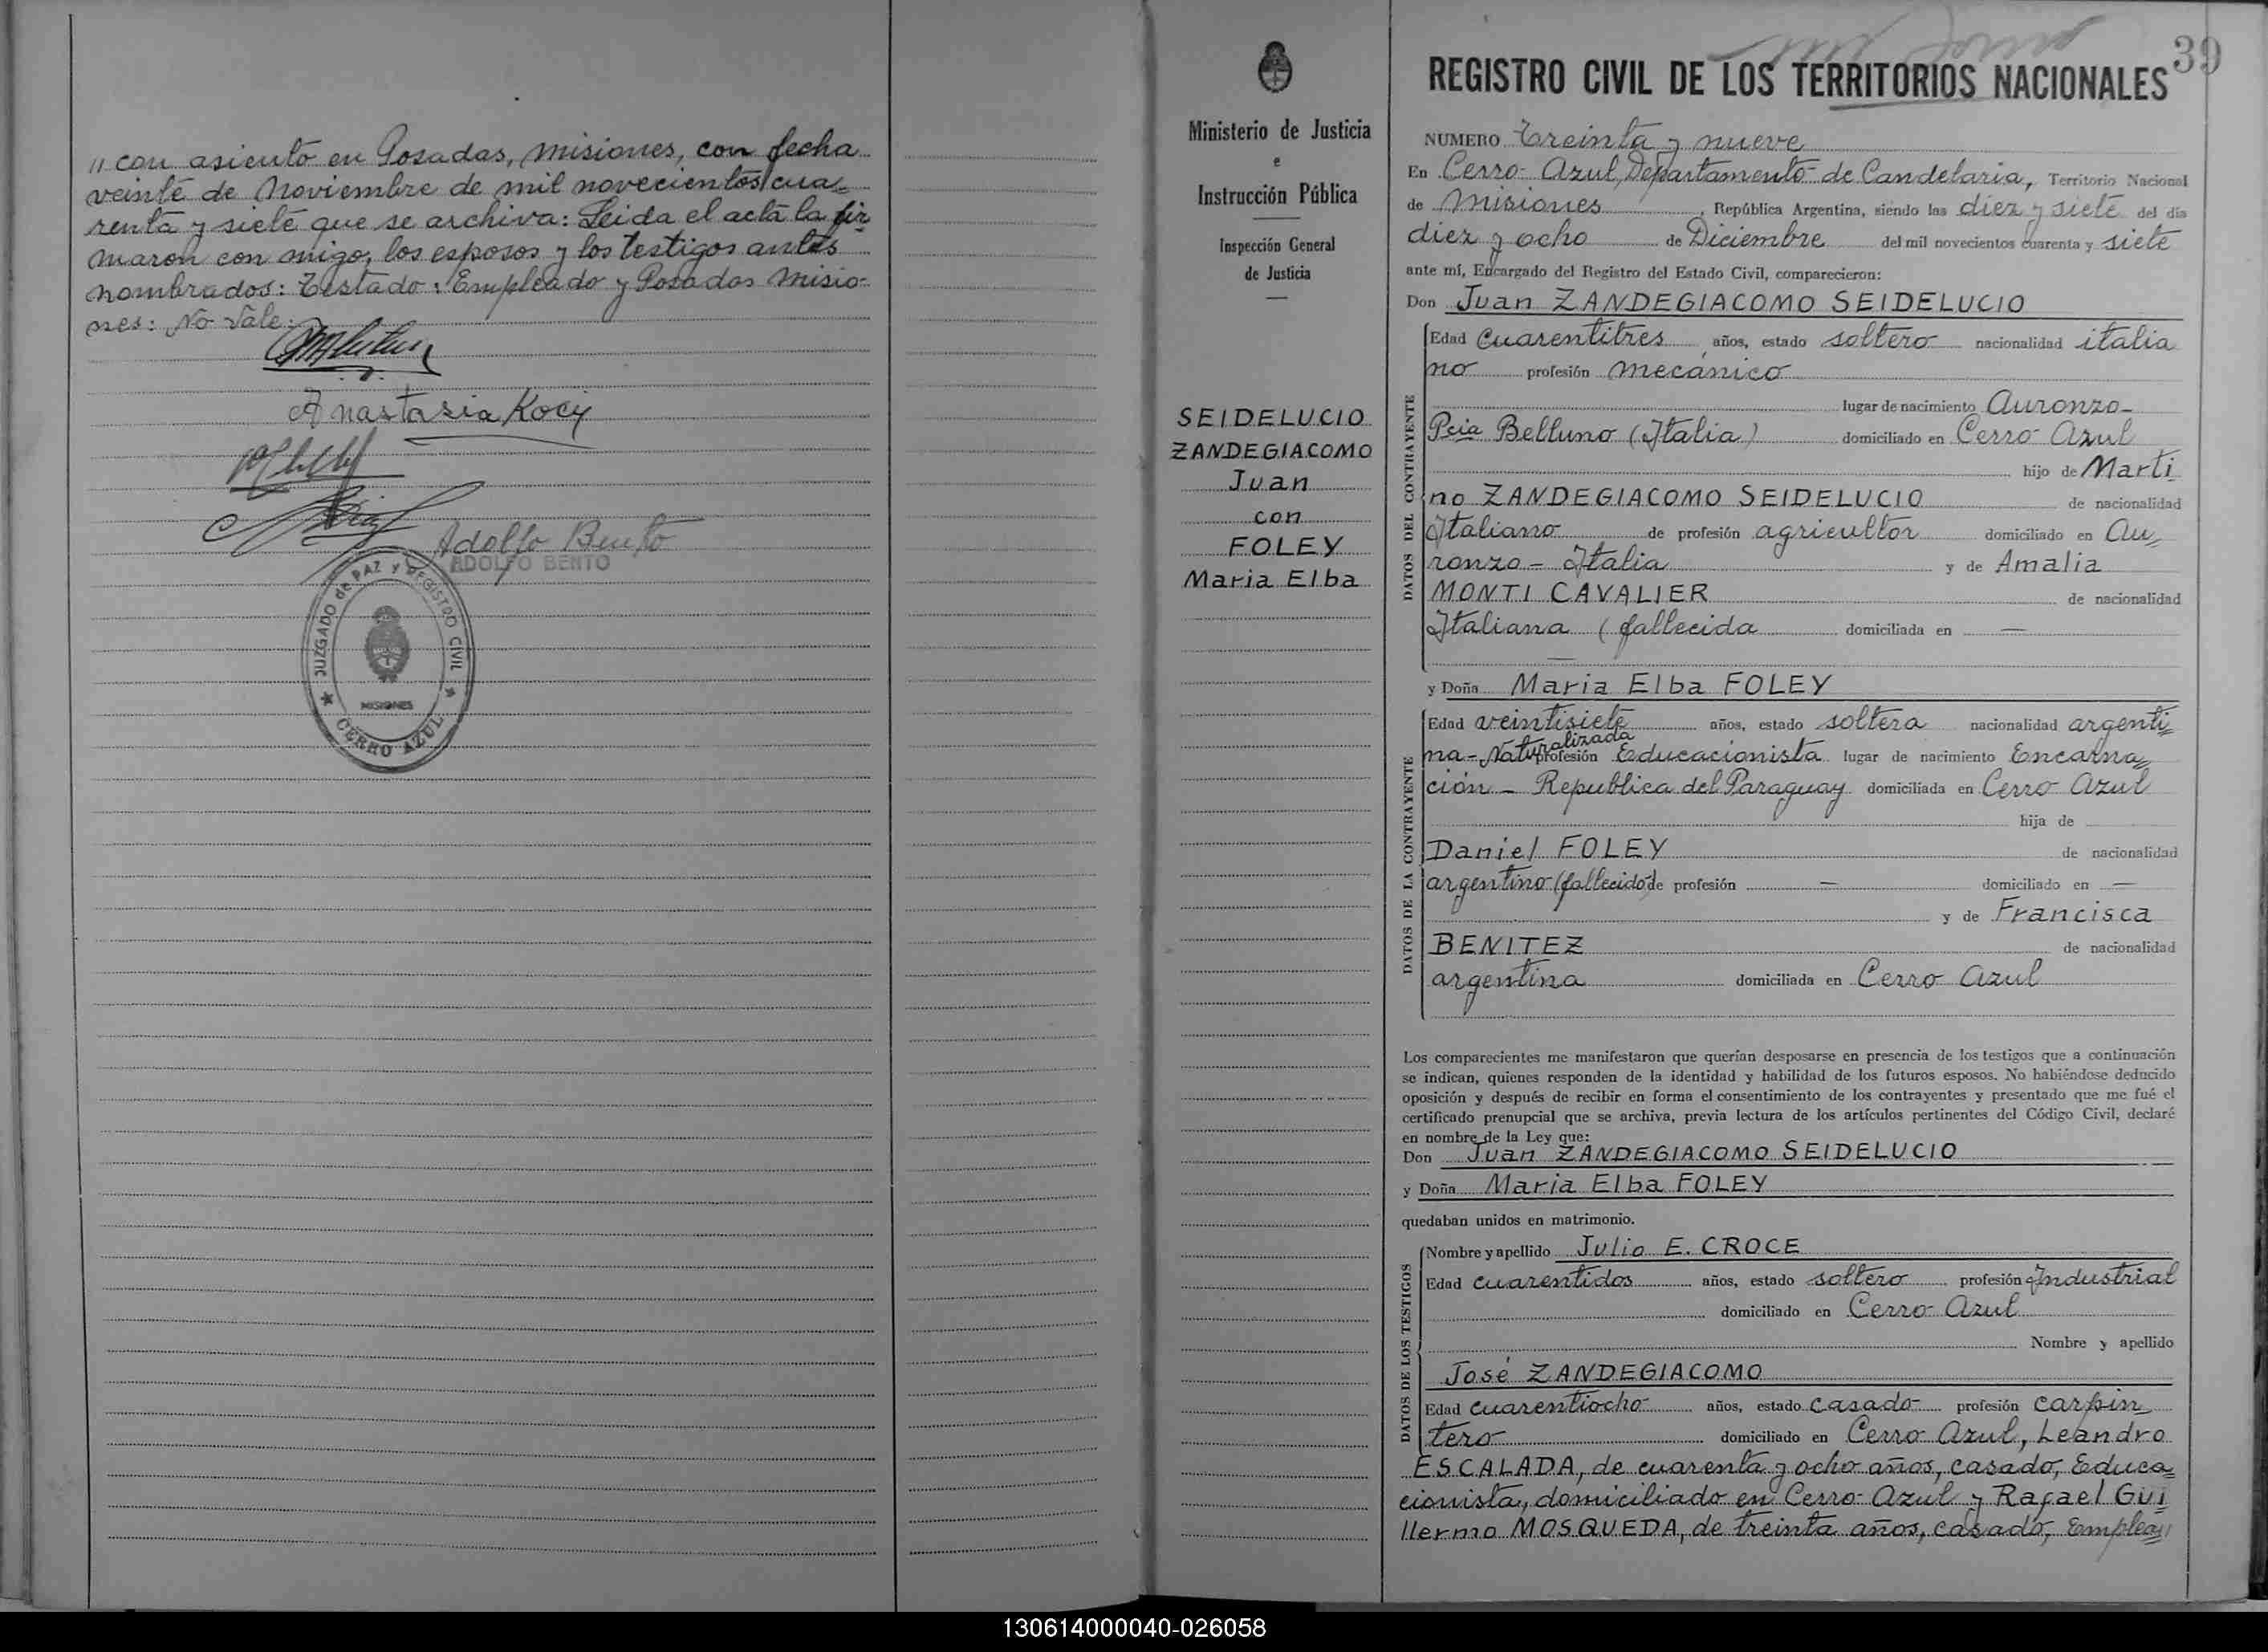 " con asiento en Posadas, Misiones, con fecha
veinte de Noviembre de mil novecientos cua=
renta y siete que se archiva: Leida el acta la fir
maron con migo, los esposos y los testigos antes
nombrados: Testado: Empleado y Posadas Misio-
nes: No Vale:
Anastasia Kociz
Adolfo Bento
ADOLFO BENTO
JUZGADO de PAZ y REGISTRO CIVIL
MISIONES
CERRO AZUL
Ministerio de Justicia
e
Instrucción Pública
Inspección General
de Justicia
SEIDELUCIO
ZANDEGIACOMO
Juan
con
FOLEY
Maria Elba
39
REGISTRO CIVIL DE LOS TERRITORIOS NACIONALES
NUMERO Treinta y nueve
En Cerro Azul, Departamento de Candelaria, Territorio Nacional
de Misiones, República Argentina, siendo las diez y siete del día
diez y ocho de Diciembre del mil novecientos cuarenta y siete
ante mí, Encargado del Registro del Estado Civil, comparecieron:
Don Juan ZANDEGIACOMO SEIDELUCIO
DATOS DEL CONTRAYENTE
Edad Cuarentitres años, estado soltero nacionalidad italia
no profesión mecánico
lugar de nacimiento Auronzo-
Pcia Belluno (Italia) domiciliado en Cerro Azul
hijo de Marti
no ZANDEGIACOMO SEIDELUCIO de nacionalidad
Italiano de profesión agricultor domiciliado en Au=
ronzo - Italia y de Amalia
MONTI CAVALIER de nacionalidad
Italiana (fallecida domiciliada en —
—
y Doña Maria Elba FOLEY
DATOS DE LA CONTRAYENTE
Edad veintisiete años, estado soltera nacionalidad argenti=
na-Naturalizada profesión Educacionista lugar de nacimiento Encarna=
ción - Republica del Paraguay domiciliada en Cerro Azul
hija de
Daniel FOLEY de nacionalidad
argentino (fallecido) de profesión — domiciliado en —
y de Francisca
BENITEZ de nacionalidad
argentina domiciliada en Cerro Azul
Los comparecientes me manifestaron que querían desposarse en presencia de los testigos que a continuación
se indican, quienes responden de la identidad y habilidad de los futuros esposos. No habiéndose deducido
oposición y después de recibir en forma el consentimiento de los contrayentes y presentado que me fué el
certificado prenupcial que se archiva, previa lectura de los artículos pertinentes del Código Civil, declaré
en nombre de la Ley que:
Don Juan ZANDEGIACOMO SEIDELUCIO
y Doña Maria Elba FOLEY
quedaban unidos en matrimonio.
DATOS DE LOS TESTIGOS
Nombre y apellido Julio E. CROCE
Edad cuarentidos años, estado soltero profesión Industrial
domiciliado en Cerro Azul
Nombre y apellido
José ZANDEGIACOMO
Edad cuarentiocho años, estado casado profesión carpin
tero domiciliado en Cerro Azul, Leandro
ESCALADA, de cuarenta y ocho años, casado, Educa=
cionista, domiciliado en Cerro Azul y Rafael Gui
llermo MOSQUEDA, de treinta años, casado, Emplea"
130614000040-026058